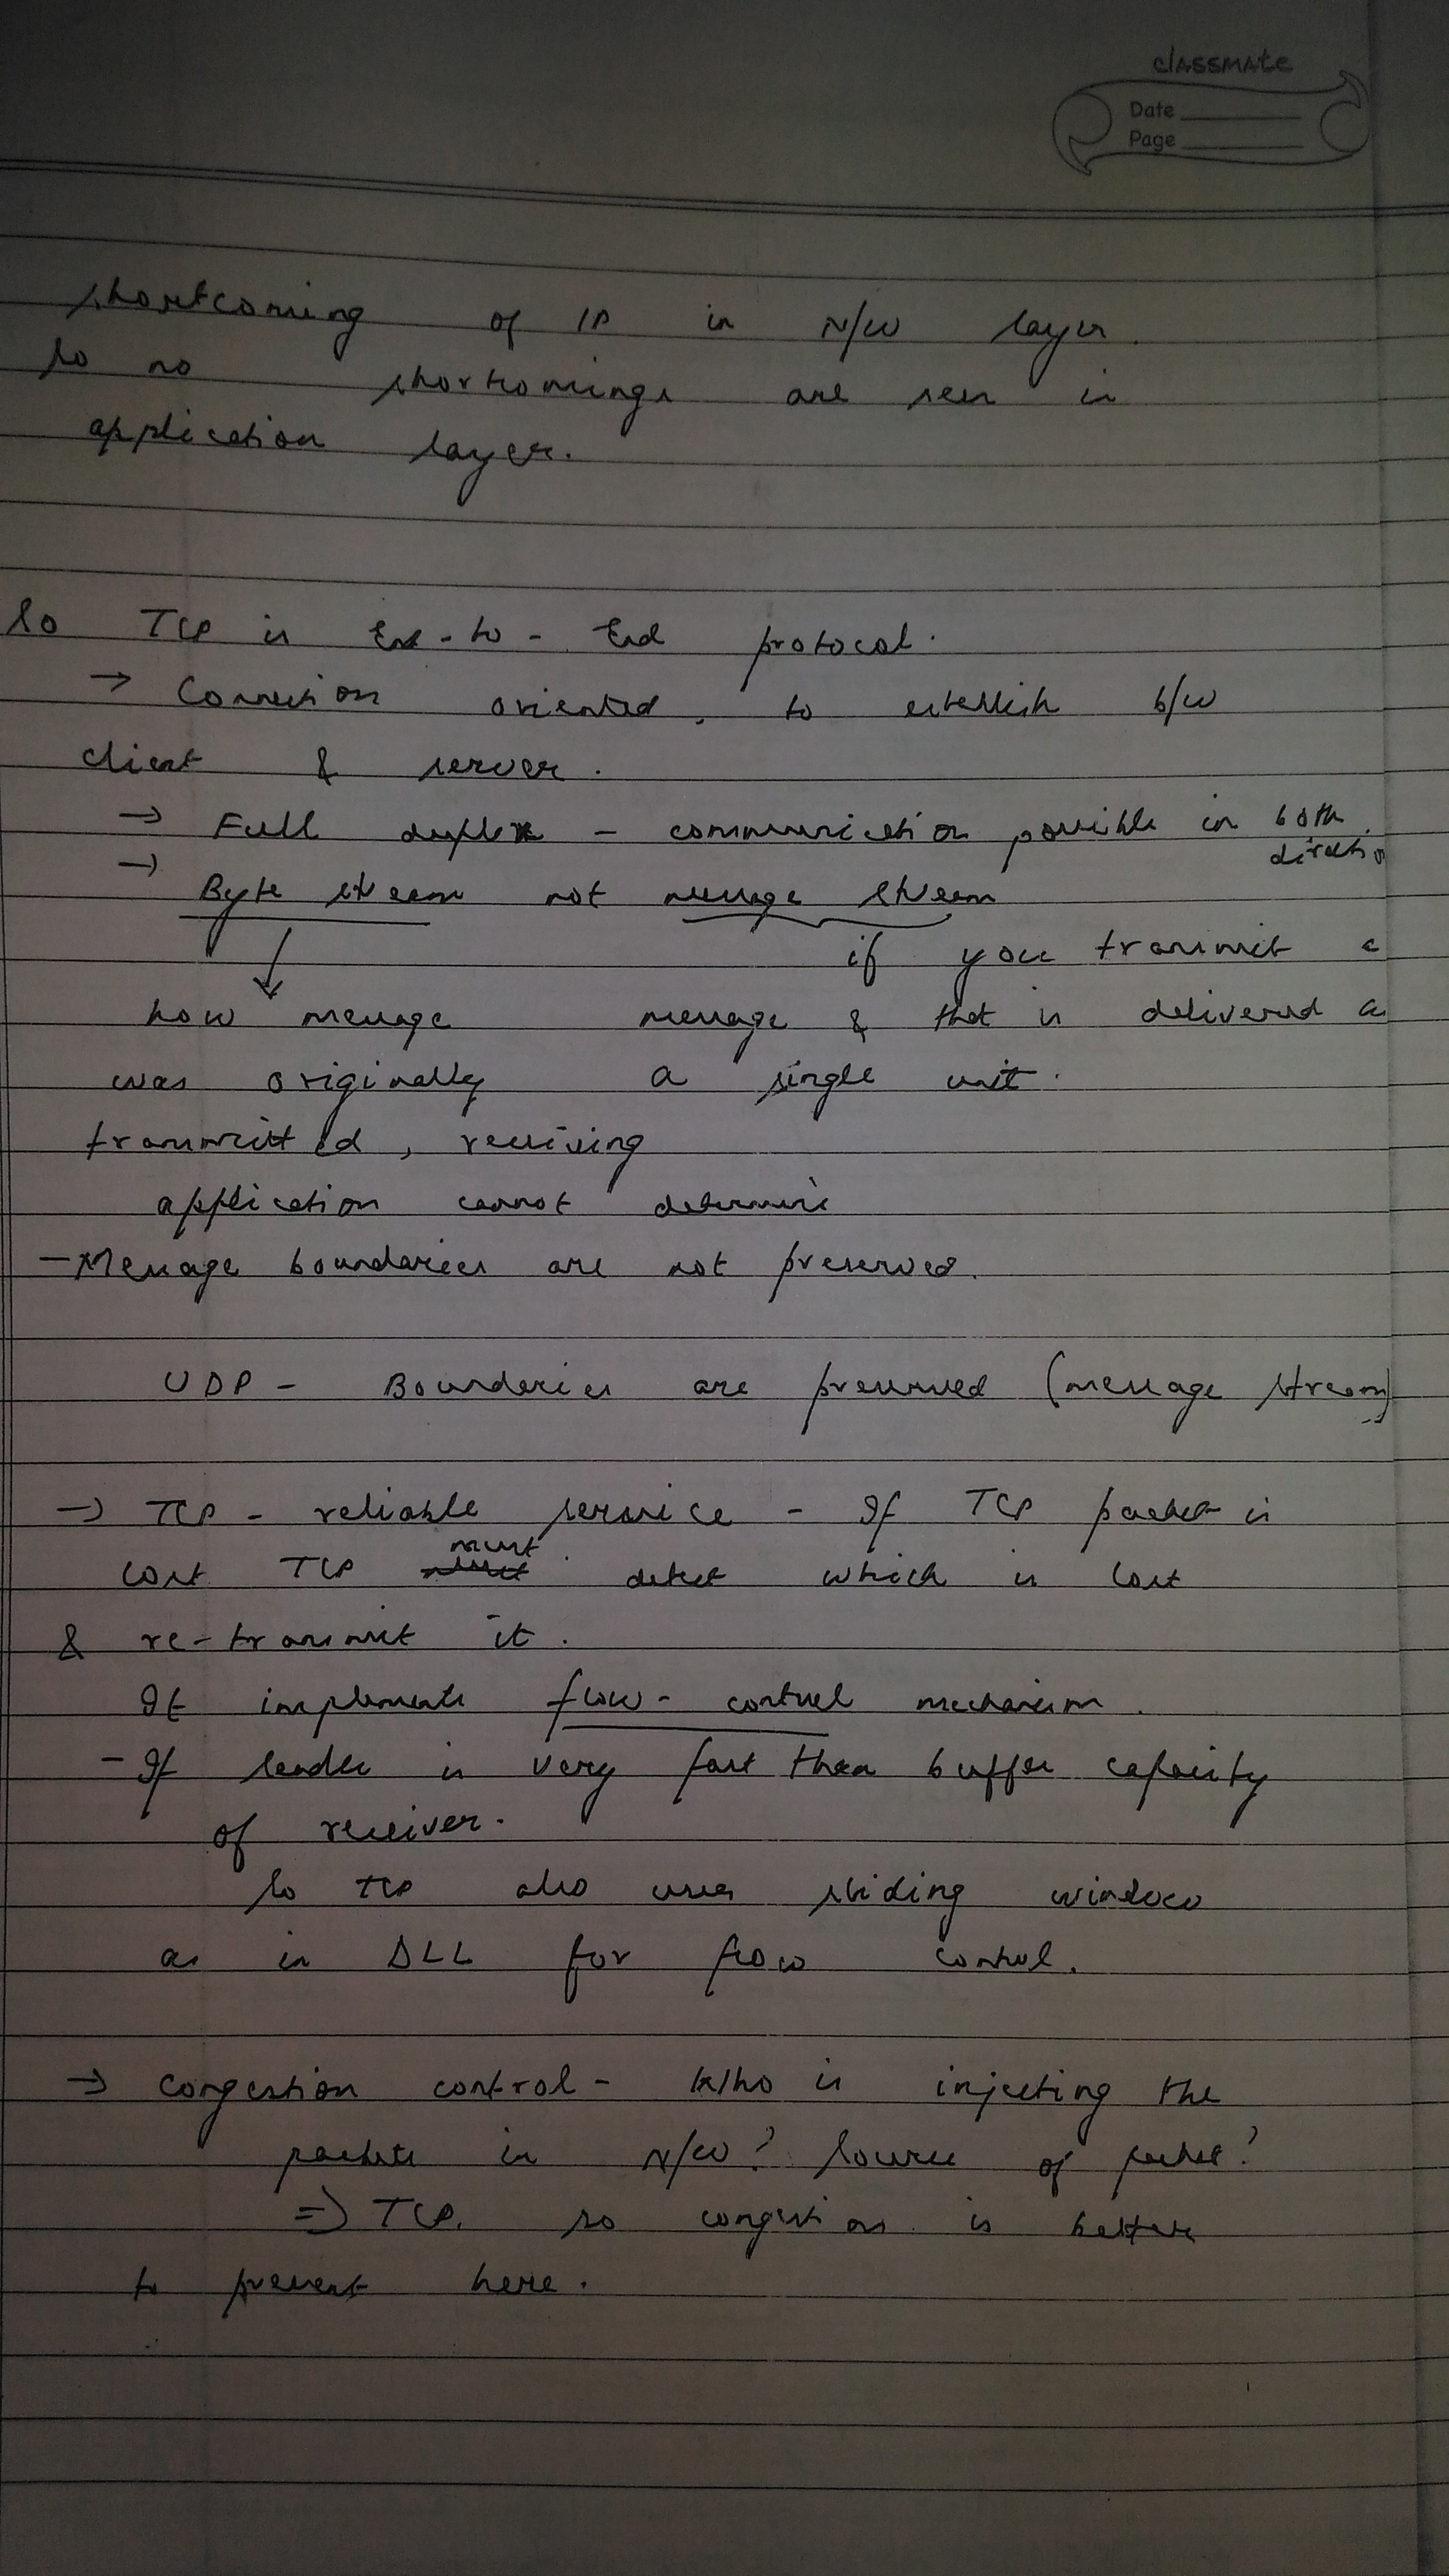 classmate
Date
Page
shortcoming of IP in N/W layer.
so no shortcomings are seen in
application layer.
So TCP is End-to-End protocol.
→ Connection oriented, to establish b/w
client & server.
→ Full duplex - communication possible in both
directio
→ Byte stream not message stream
if you transmit a
how message message & that is delivered as
was originally a single unit.
transmitted, receiving
application cannot determine
- Message boundaries are not preserved.
UDP - Boundaries are preserved (message stream)
→ TCP - reliable service - If TCP packet is
lost TCP must detect which is lost
& re-transmit it.
It implements flow-control mechanism.
- If sender is very fast than buffer capacity
of receiver.
So TCP also uses sliding window
as in DLL for flow control.
→ Congestion control - Who is injecting the
packets in N/W? Source of packet?
⇒ TCP, so congestion is better
to prevent here.